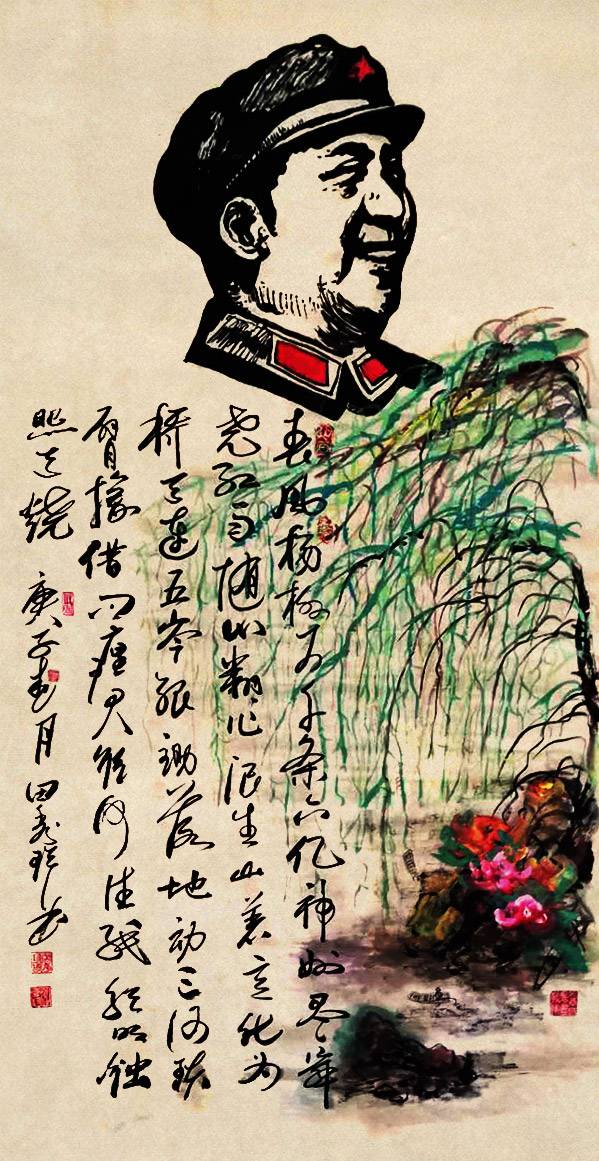 春风杨柳万千条六亿神州尽舜
尧红雨随心翻作浪青山着意化为
桥天连五岭银锄落地动三河铁
臂摇借问瘟君欲何往纸船明烛
照天烧 庚子春月 田